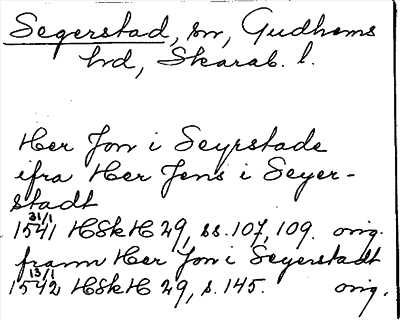 Segerstad, sn, Gudhems
hd, Skarab. l.
Her Jon i Seyrstade
ifra Her Jens i Seyer-
stadt
31/1
1541 HSkH 29, ss. 107, 109. orig.
framm Her Jon i Segerstadt
13/1
1542 HSkH 29, s. 145. orig.